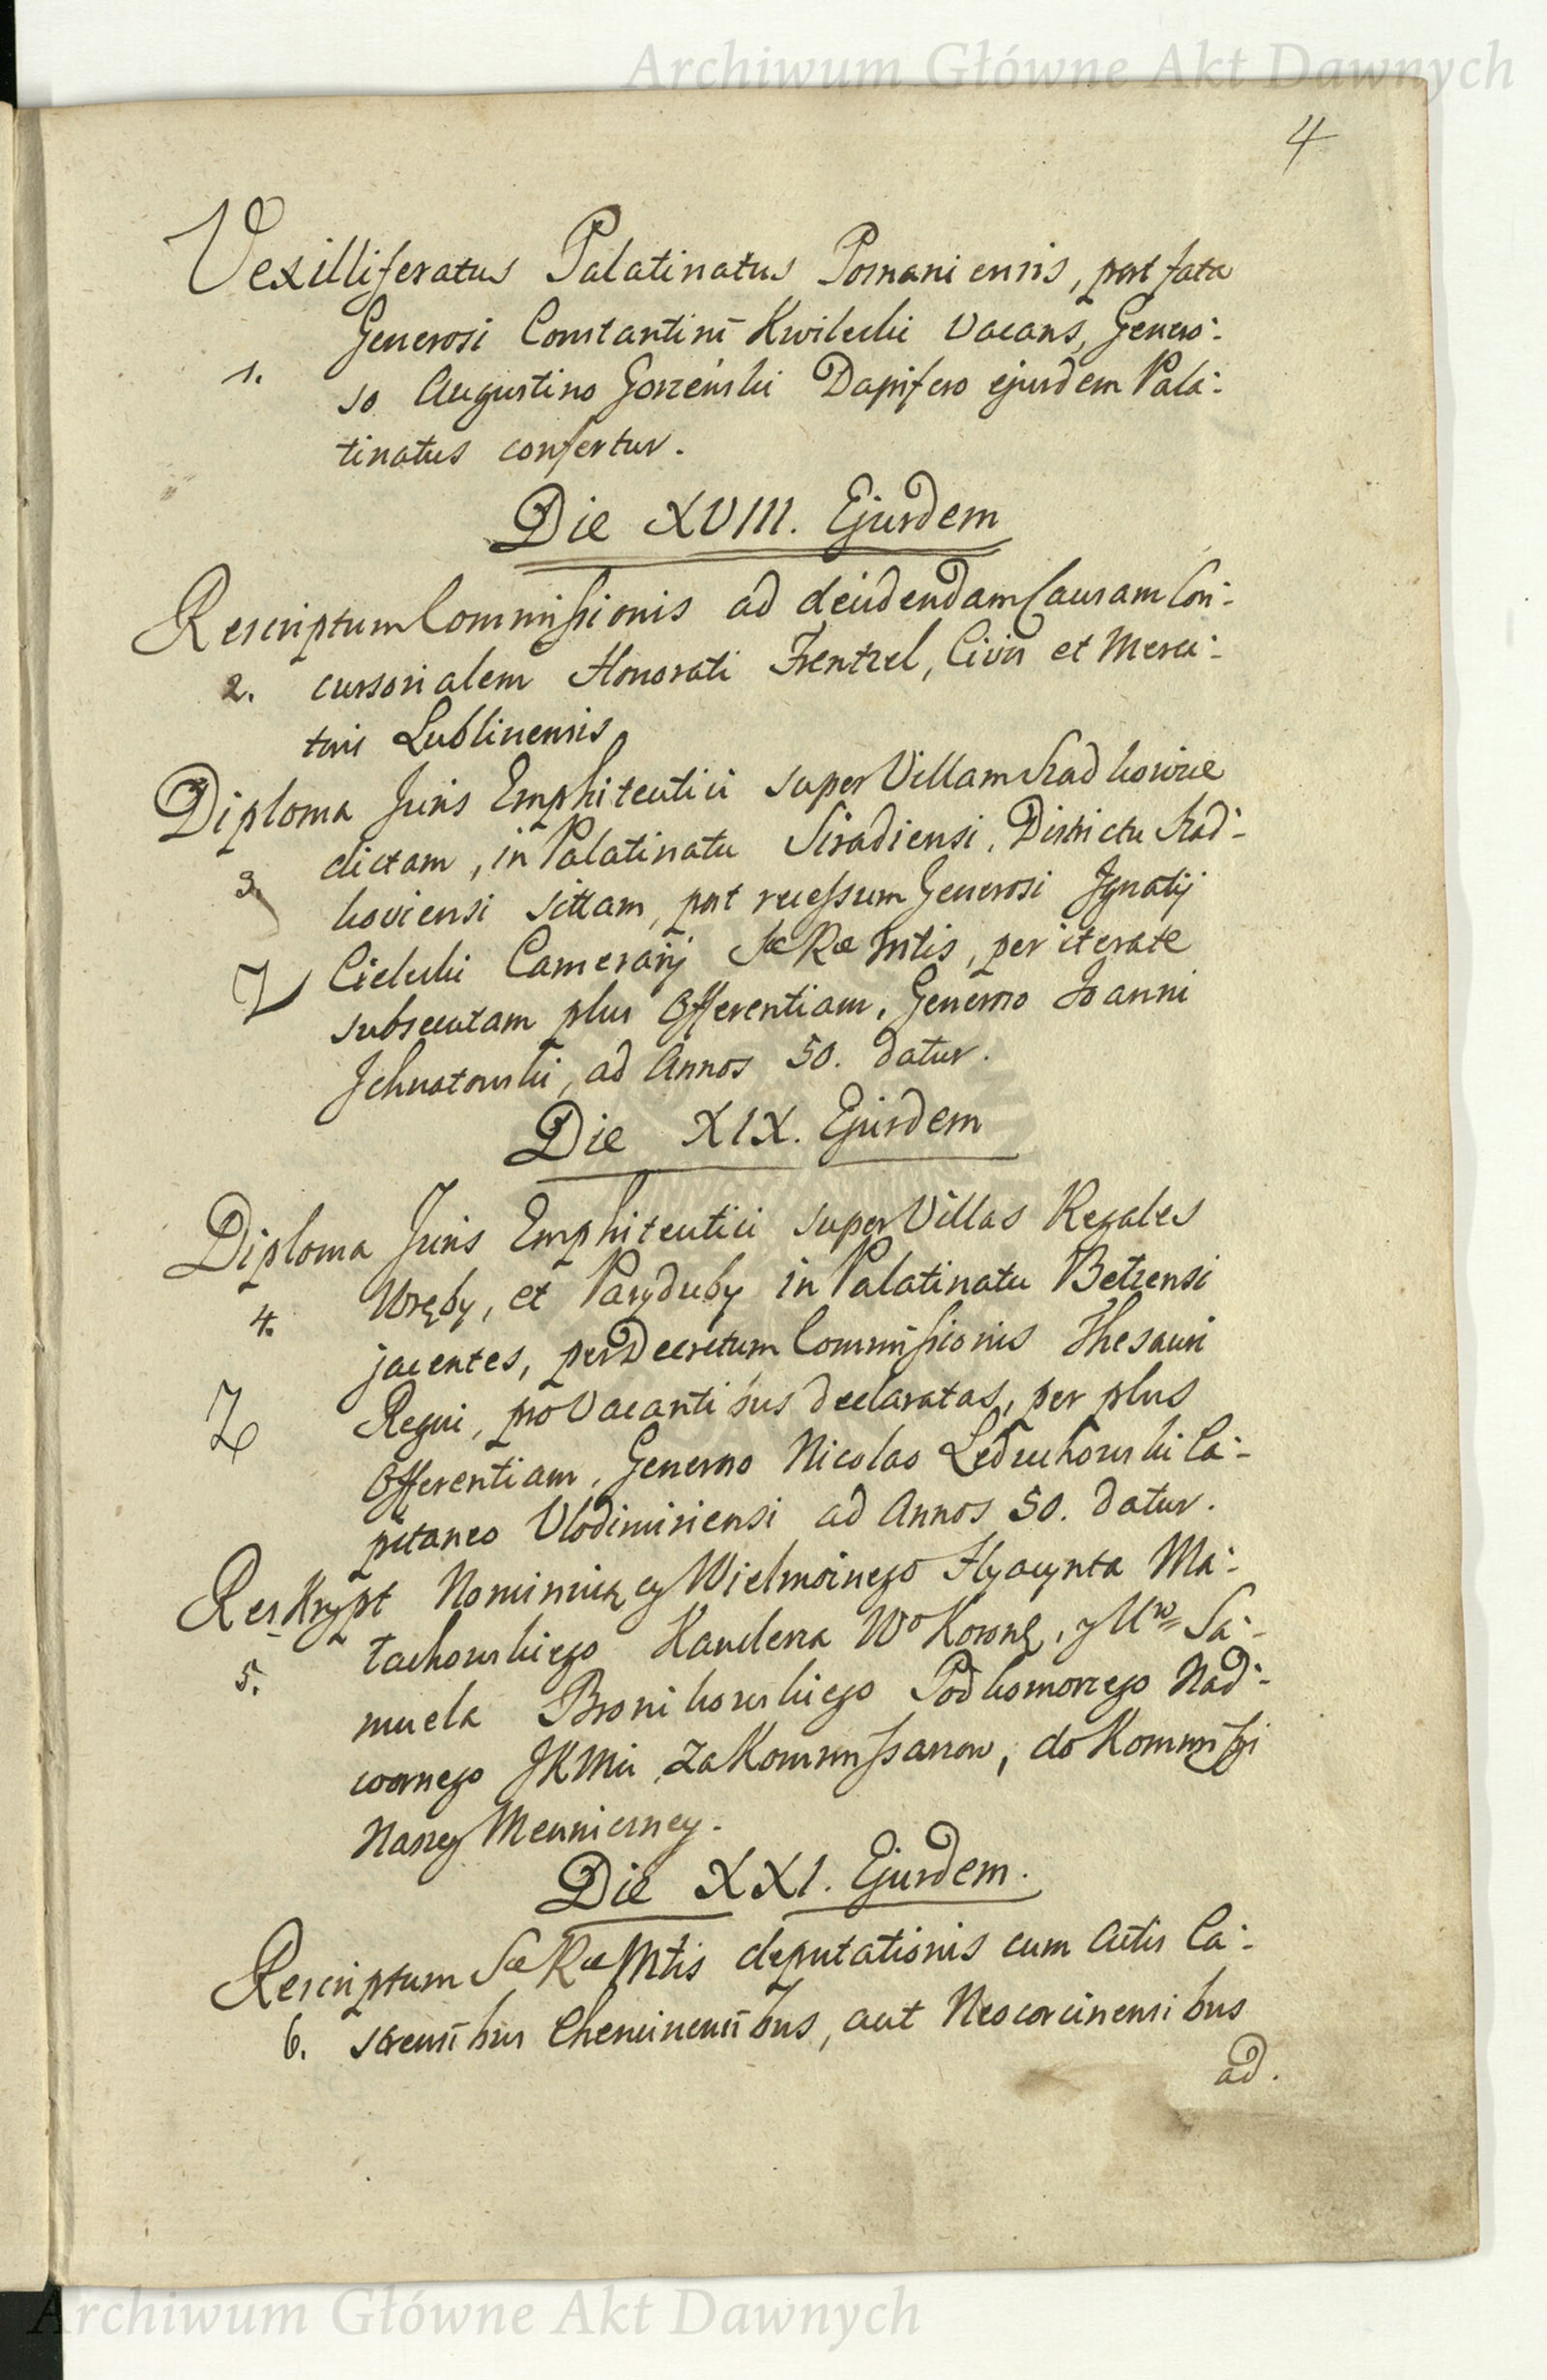 Archiwum Główne Akt Dawnych
4
Vexilliferatus Palatinatus Posnaniensis, post fata
Generosi Constantini Kwilecki Vacans, Genero:
1. so Augustino Gorzeński Dapifero ejusdem Pala:
tinatus confertur.
Die XVIII. Ejusdem
Rescriptum Commissionis ad decidendam Causam Con:
2. cursorialem Honorati Frentzel, Civis et Merca:
toris Lublinensis
Diploma Juris Emphiteutici super Villam Szadkowice
3. dictam, in Palatinatu Siradiensi, Districtu Szad:
koviensi sittam, post recessum Generosi Ignatij
Z Cielecki Camerarij Sæ Ræ Mtis, per iterate
subsecutam plus Offerentiam, Generoso Joanni
Ichnatowski, ad Annos 50. datur.
Die XIX. Ejusdem
Diploma Juris Emphiteutici super Villas Regales
4. Uręby, et Paryduby in Palatinatu Betzensi
jacentes, per Decretum Commissionis Thesauri
Z Regni, pro Vacantibus declaratas, per plus
Offerentiam, Generoso Nicolao Leduchowski Ca:
pitaneo Vlodimiriensi ad Annos 50. datur.
Reskrypt Nominuiący Wielmożnego Hyacynta Ma:
5. łachowskiego Kanclerza Wo Koronę, y Uw Sa:
muela Bronikowskiego Podkomorzego Nad:
wornego JKMci, za Kommissarzow, do Kommissyi
Naszey Menniczney.
Die XXI. Ejusdem.
Rescriptum Sæ Ræ Mtis deputationis cum Actis Ca:
6. strensibus Chencinensibus, aut Neocorcinensibus
ad.
Archiwum Główne Akt Dawnych